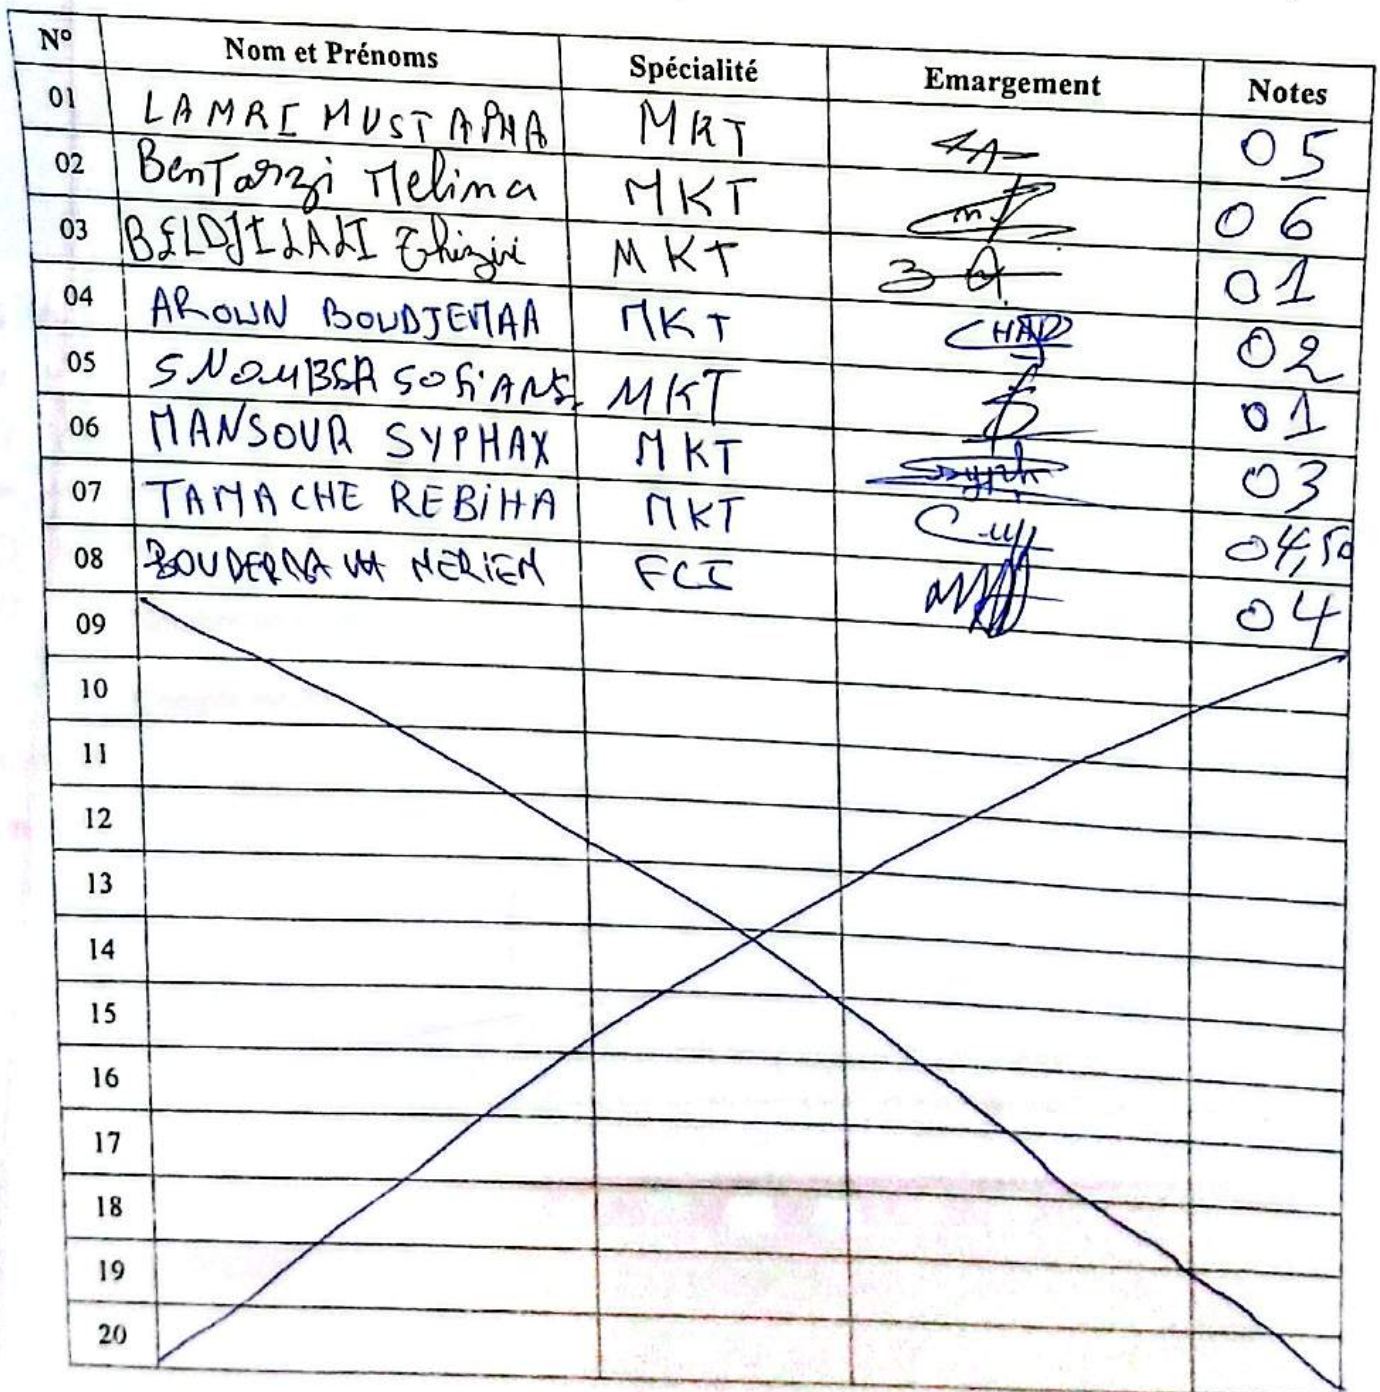 N° Nom et Prénoms Spécialité Emargement Notes
01 LAMRI MUSTAPHA MKT 05
02 BenTarzi Melina MKT 06
03 BELDJILALI Thiziri MKT 01
04 AROUN BOUDJEMAA MKT 02
05 SOFIANE MKT 01
06 MANSOUR SYPHAX MKT 03
07 TAMACHE REBiHA MKT 04,50
08 MERIEM FCI 04
09
10
11
12
13
14
15
16
17
18
19
20